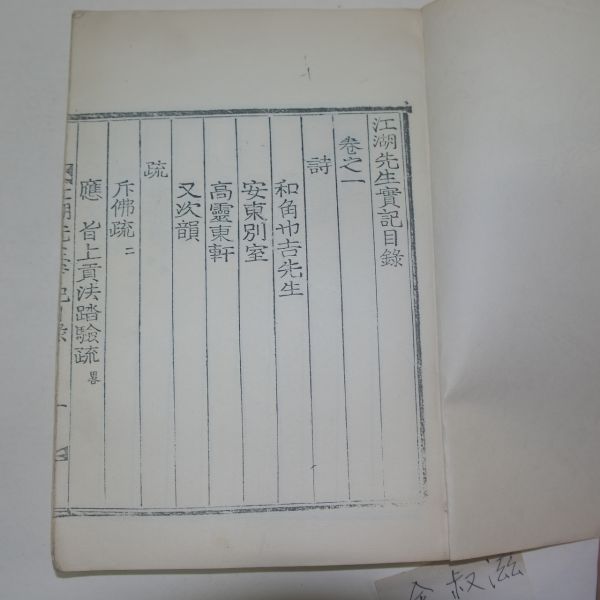 江湖先生實記目錄
卷之一
詩
和角巾吉先生
安東別室
高靈東軒
又次韻
疏
斥佛疏 二
應 旨上貢法踏驗疏 畧
江湖先生實記目錄 一
金叔滋